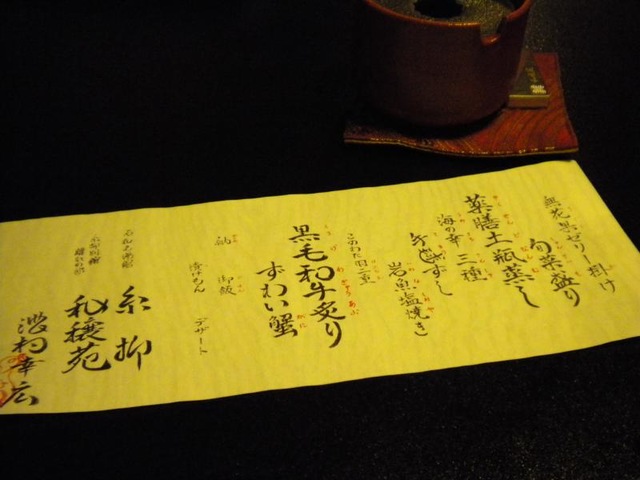 無花果ゼリー掛け
旬菜盛り
薬膳土瓶蒸し
海の幸 三種
ずし
岩魚塩焼き
このわた羽二重
黒毛和牛炙り
ずわい蟹
御飯
漬けもん
デザート
糸柳
離れの邸
和穣苑
村幸広